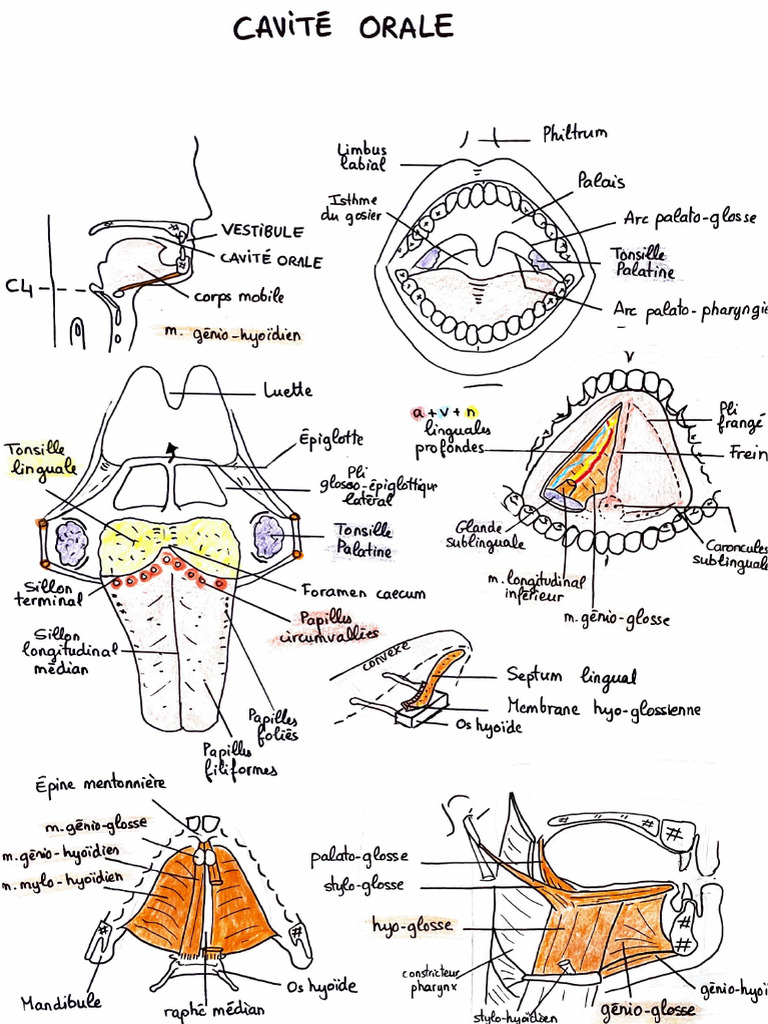 CAVITÉ ORALE
Philtrum
Limbus
labial
Palais
Isthme
du gosier
Arc palato-glosse
VESTIBULE
CAVITÉ ORALE
Tonsille
Palatine
C4
corps mobile
Arc palato-pharyngie
m. génio-hyoïdien
Luette
a + v + n
linguales
profondes
Pli
frangé
Frein
Épiglotte
Tonsille
linguale
Pli
glosso-épiglottique
latéral
Tonsille
Palatine
Glande
sublinguale
Caroncules
sublinguale
m. longitudinal
inférieur
m. génio-glosse
Sillon
terminal
Foramen caecum
Papilles
circumvallées
Sillon
longitudinal
médian
convexe
Septum lingual
Membrane hyo-glossienne
Os hyoïde
Papilles
foliés
Papilles
filiformes
Épine mentonnière
m. génio-glosse
m. génio-hyoïdien
m. mylo-hyoïdien
Mandibule
raphé médian
Os hyoïde
palato-glosse
stylo-glosse
hyo-glosse
constricteur
pharynx
stylo-hyoïdien
génio-glosse
génio-hyoï